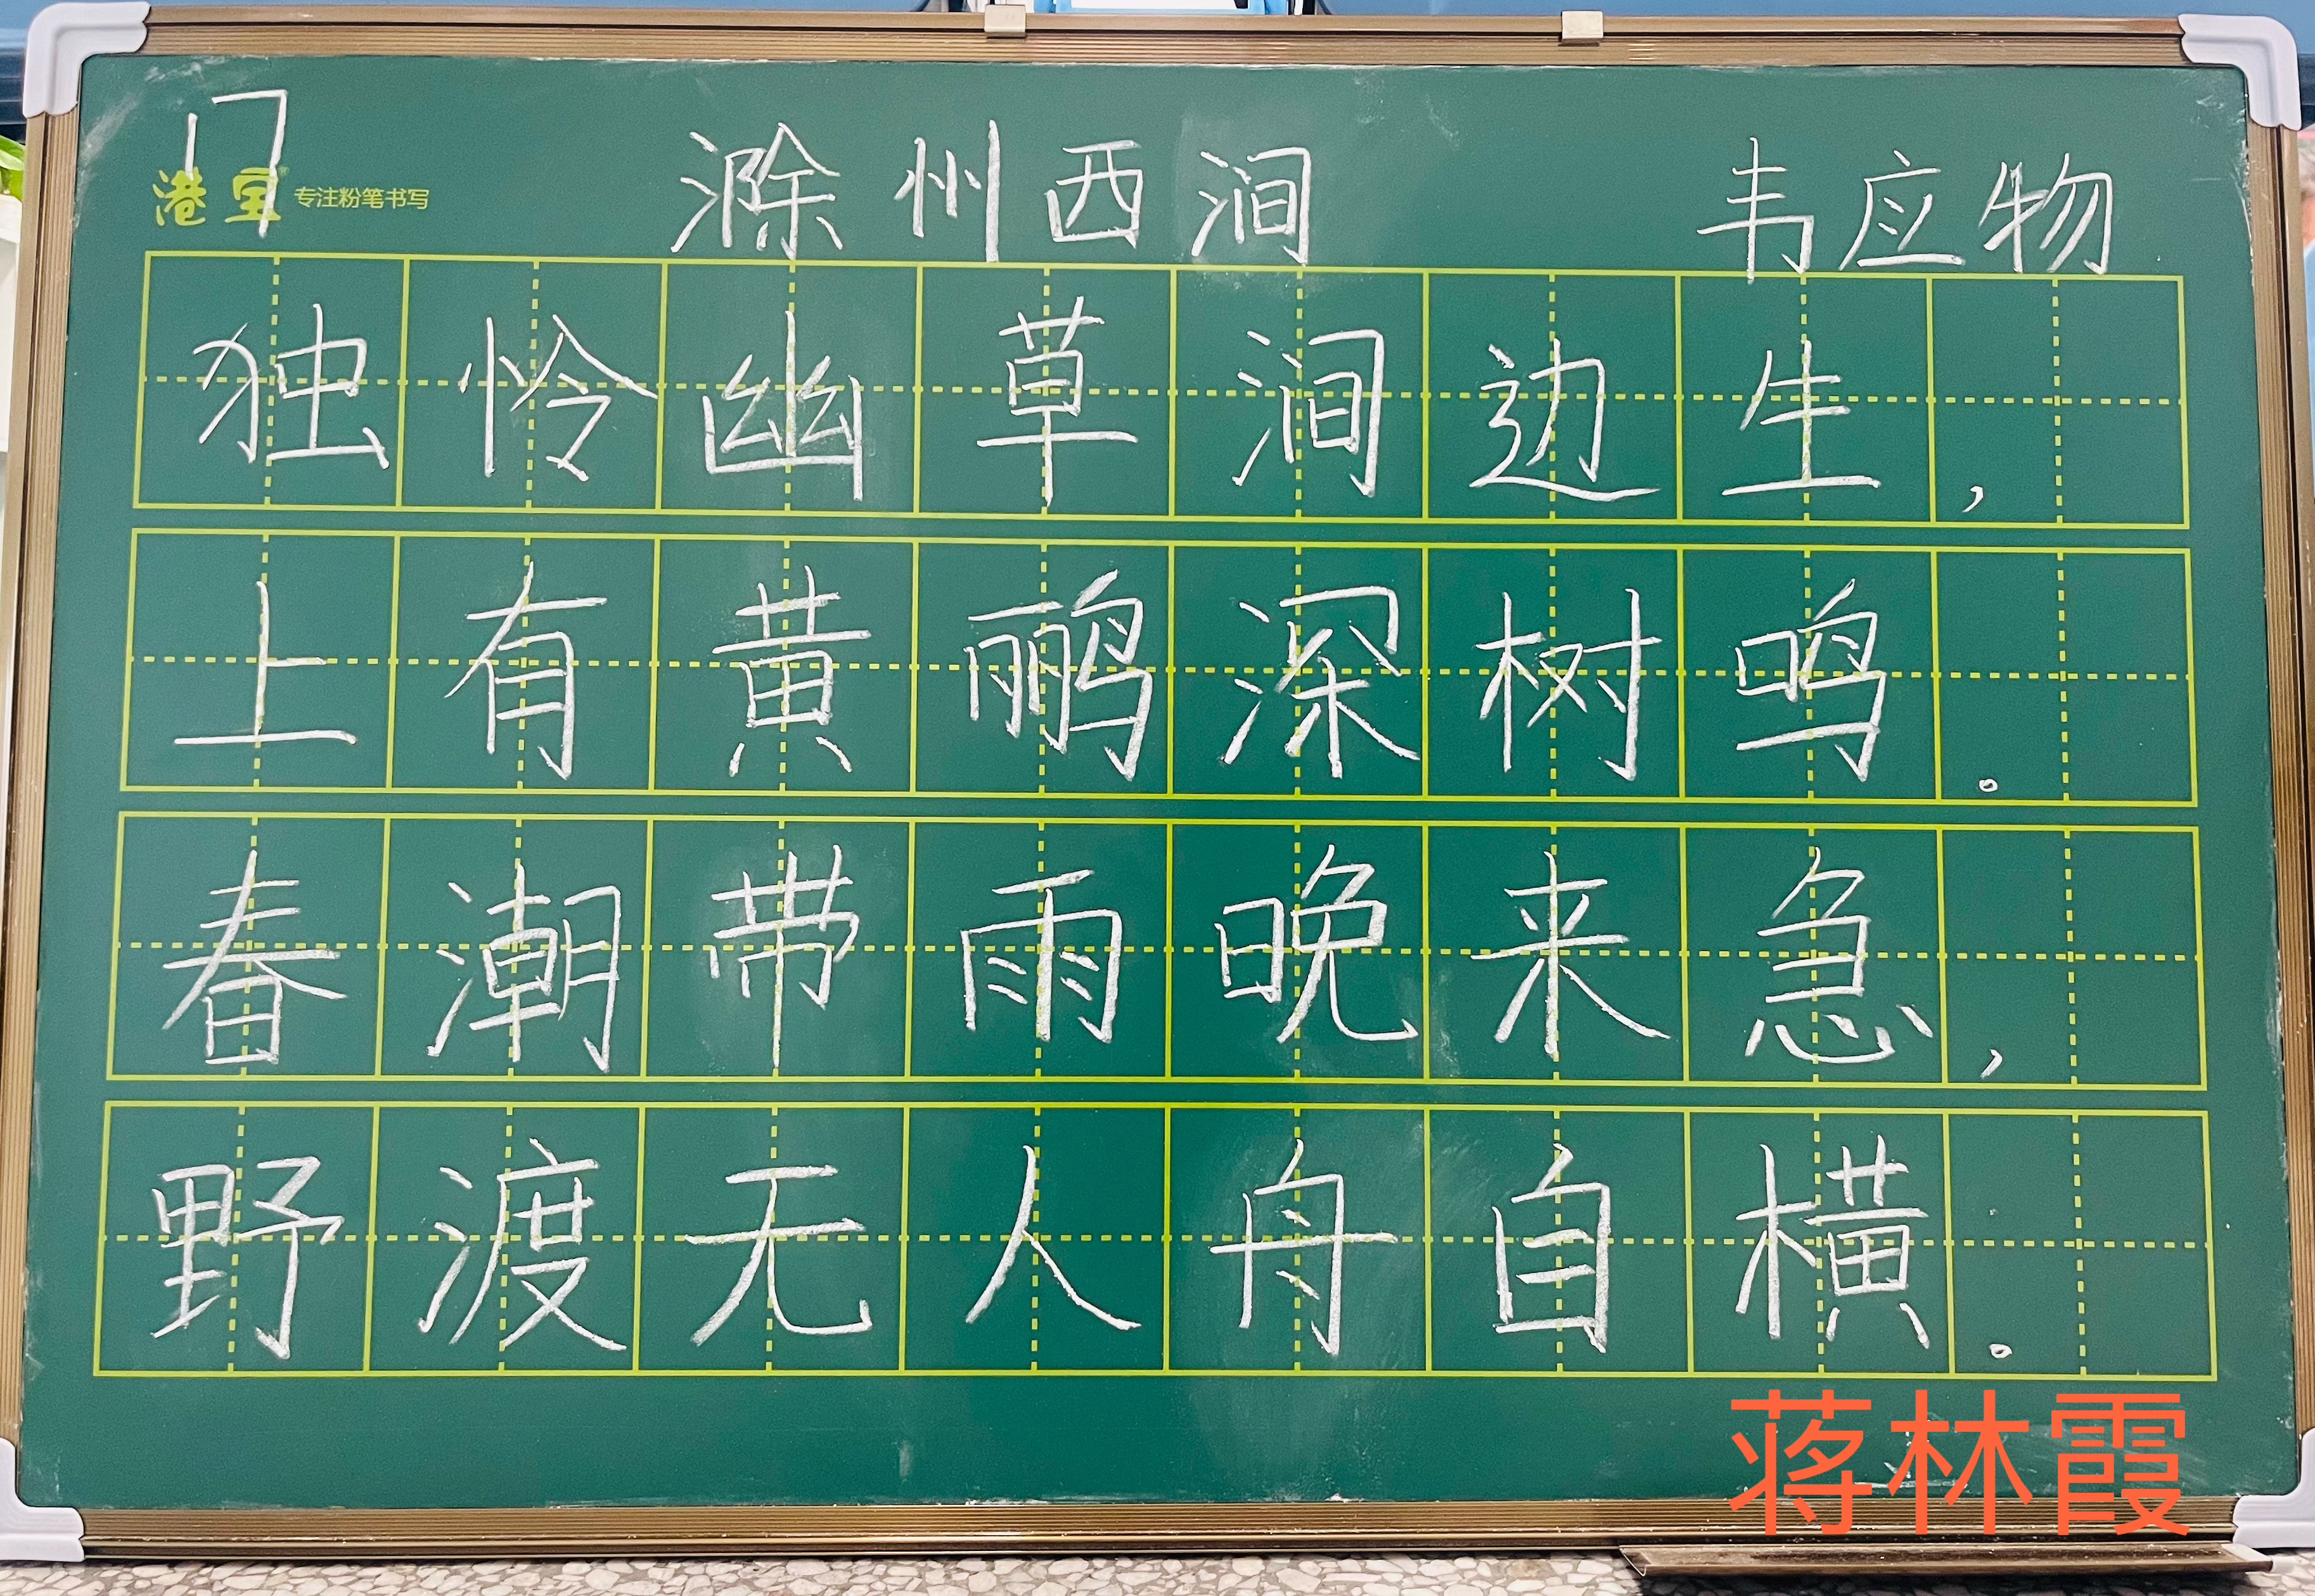 港宝 专注粉笔书写
滁州西涧 韦应物
独怜幽草涧边生，
上有黄鹂深树鸣。
春潮带雨晚来急，
野渡无人舟自横。
蒋林霞